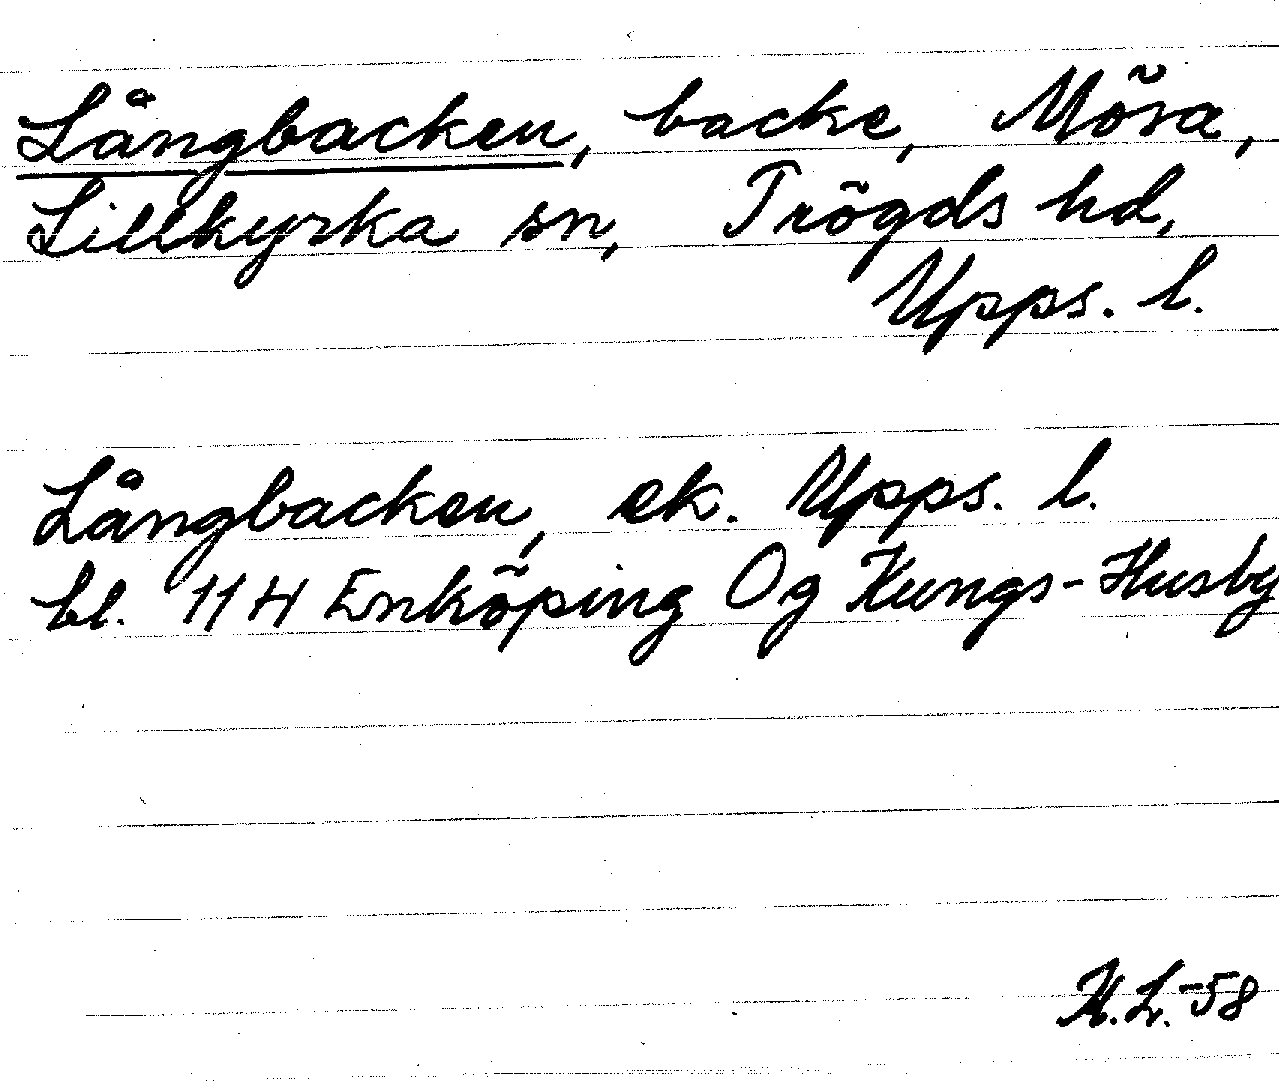 Långbacken, backe, Mösa,
Lillkyrka sn, Trögds hd,
Upps. l.
Långbacken, ek. Upps. l.
bl. 11 H Enköping Og Kungs-Husby
H.L.-58